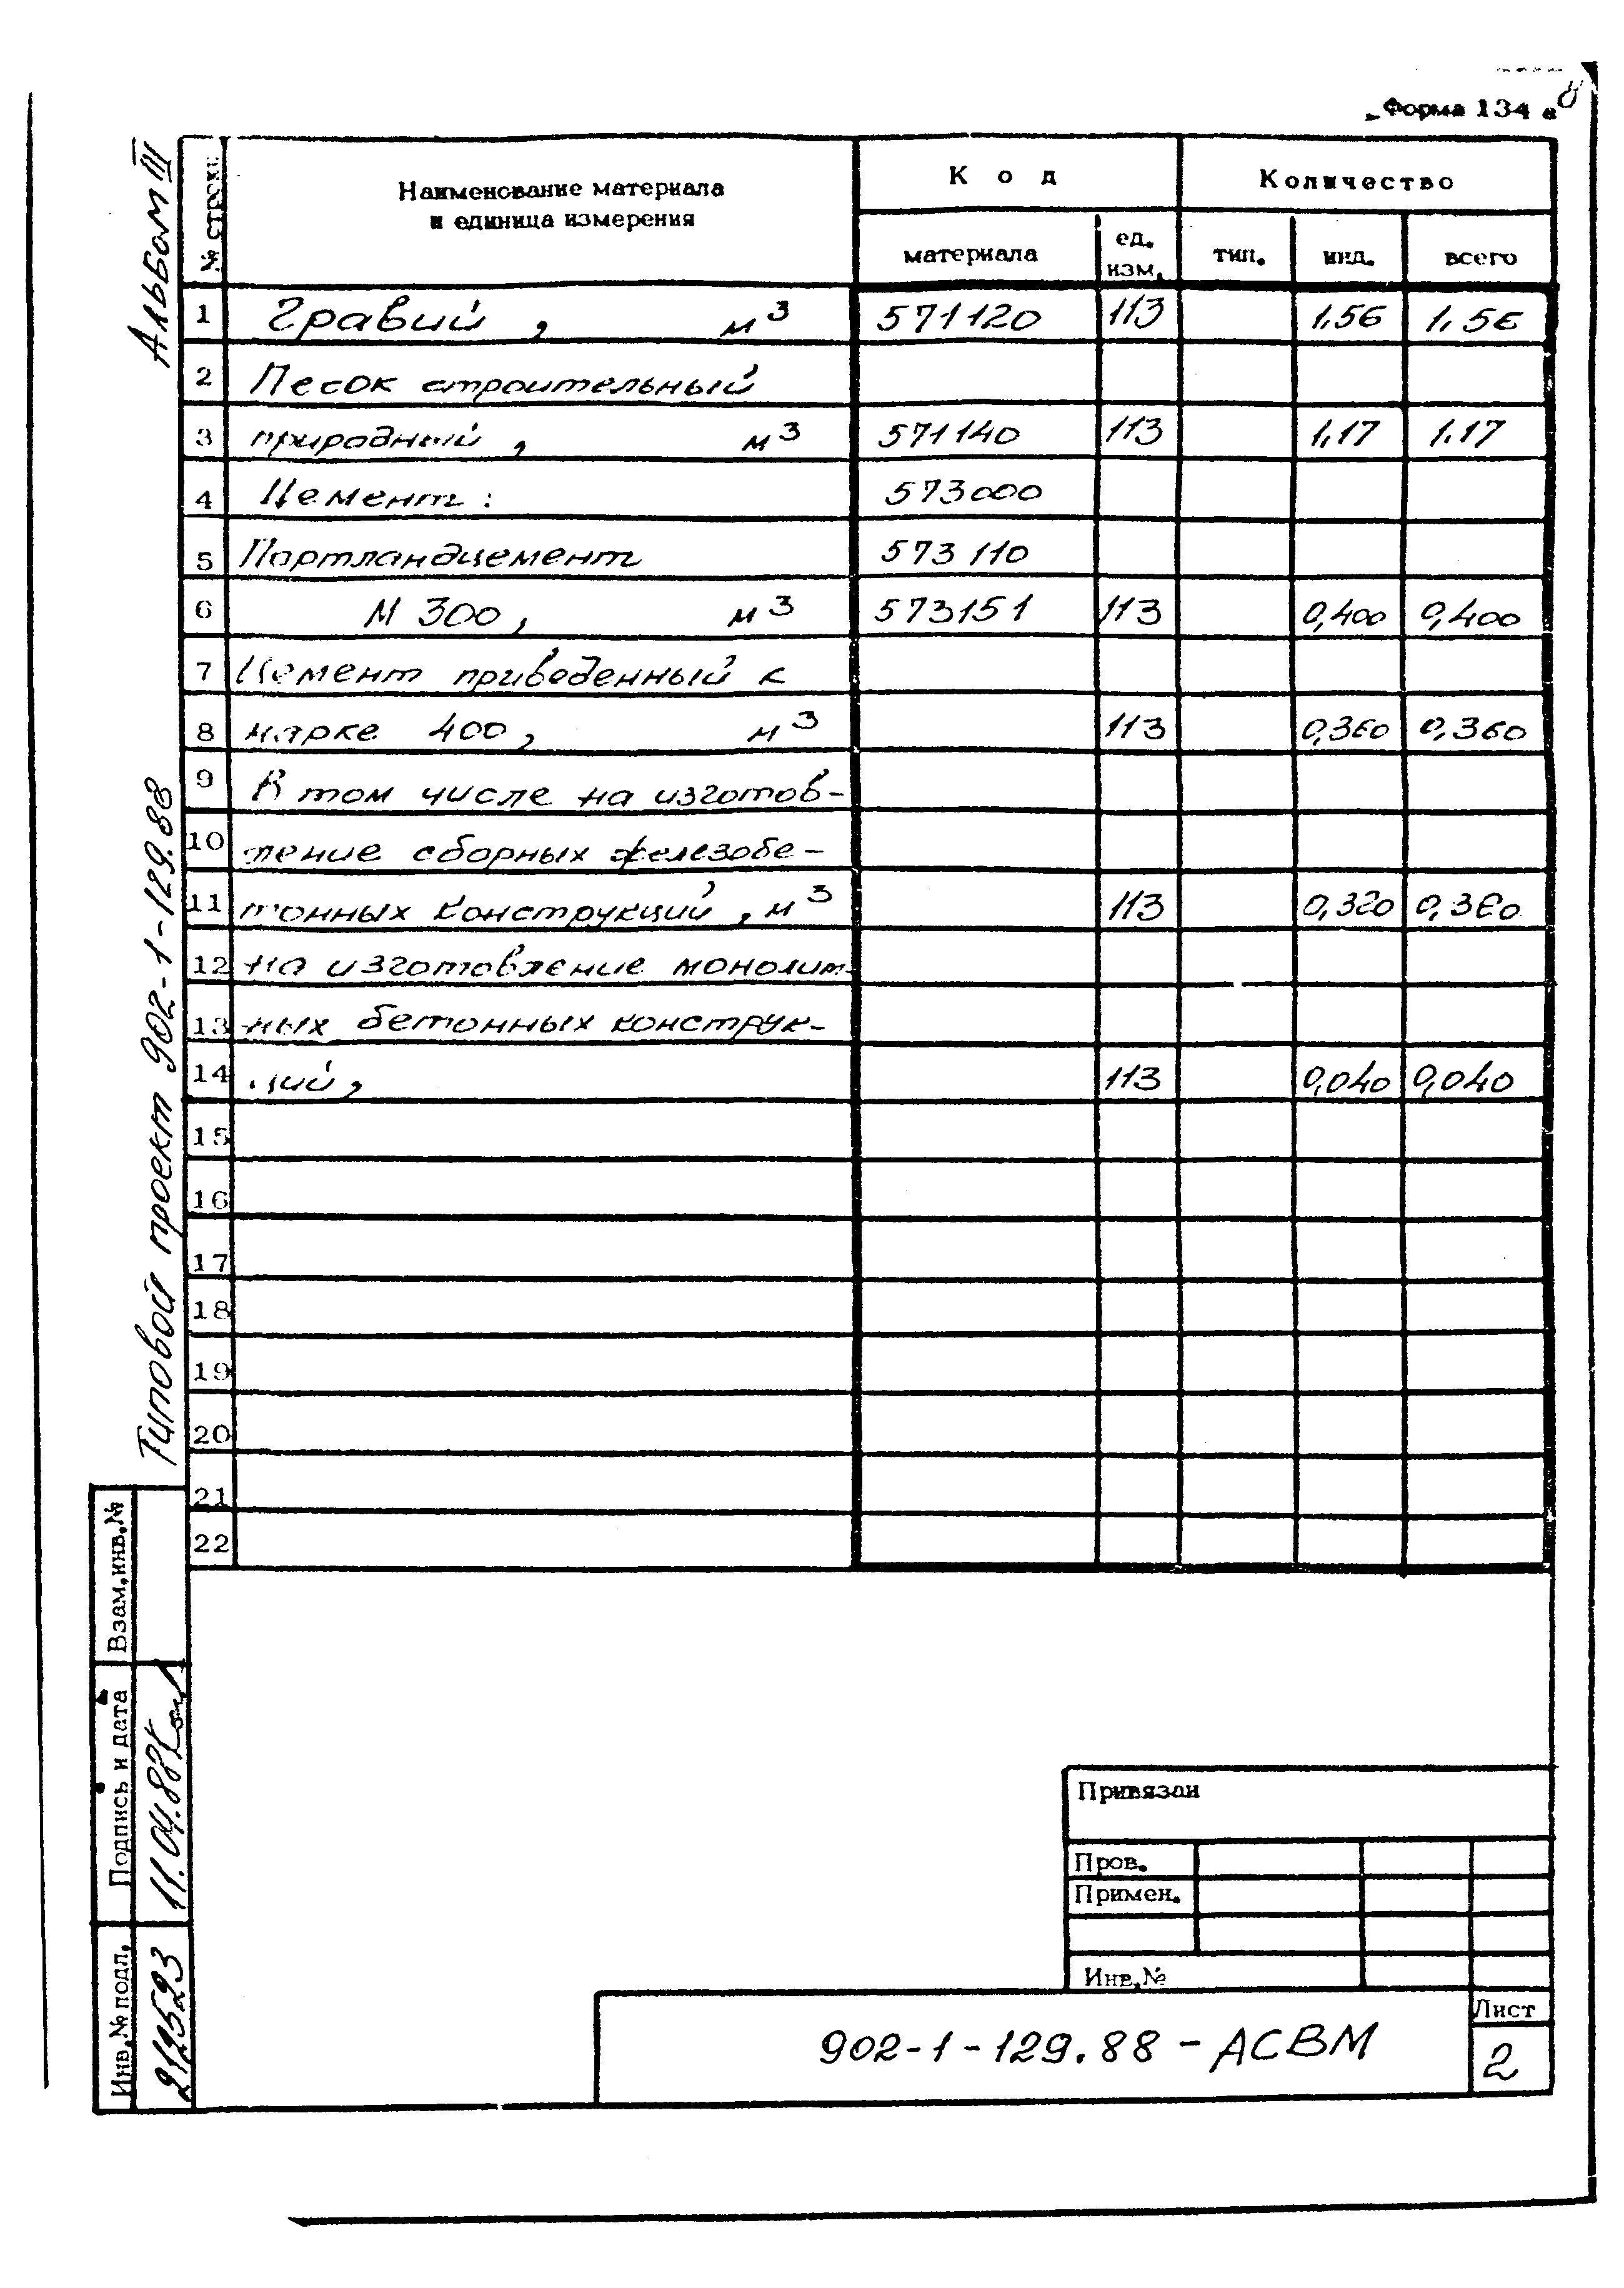 8
Форма 134 а
Альбом III
Типовой проект 902-1-129.88
№ строки
Наименование материала
и единица измерения
Код
Количество
материала
ед.
изм.
тип.
инд.
всего
1 Гравий, м3 571120 113 1,56 1,56
2 Песок строительный
3 природный, м3 571140 113 1,17 1.17
4 Цемент: 573000
5 Портландцемент 573110
6 М 300, м3 573151 113 0,400 0,400
7 Цемент приведенный к
8 марке 400, м3 113 0,360 0,360
9 В том числе на изготов-
10 ление сборных железобе-
11 тонных конструкций, м3 113 0,320
12 на изготовление монолит-
13 ных бетонных конструк-
14 ций, 113 0,040 0,040
15
16
17
18
19
20
21
22
Взам.инв.№
Подпись и дата
11.04.88
Инв.№ подл.
Привязан
Пров.
Примен.
Инв.№
902-1-129.88-АСВМ
Лист
2